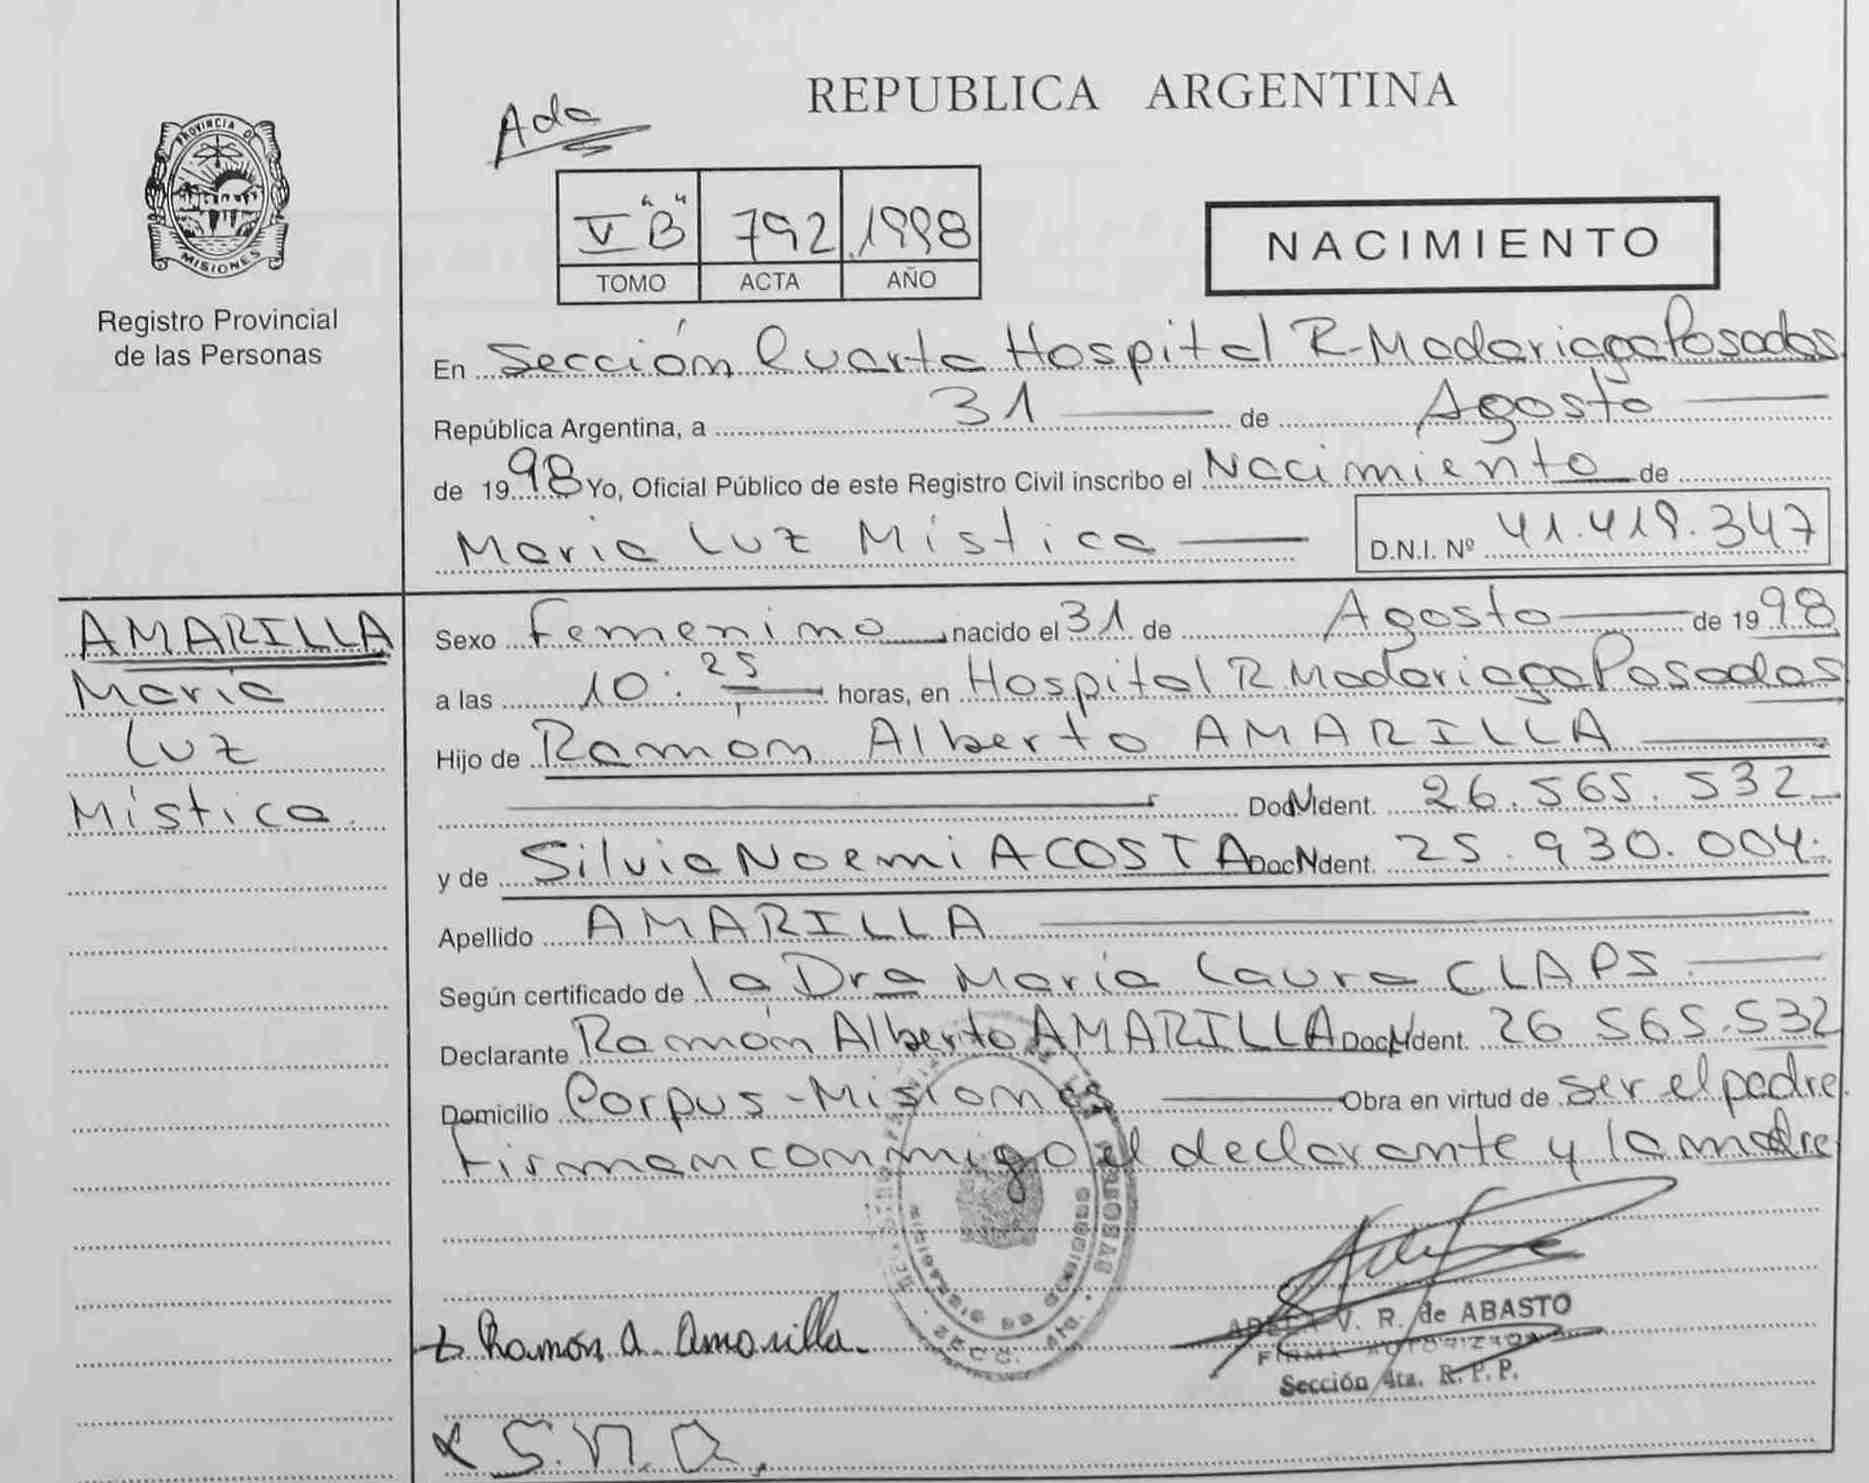 REPUBLICA ARGENTINA
Ada
PROVINCIA DE
MISIONES
Registro Provincial
de las Personas
V "B" 792 1998
TOMO ACTA AÑO
NACIMIENTO
En Sección Cuarta Hospital R. Madariaga Posadas
República Argentina, a 31 de Agosto
de 1998 Yo, Oficial Público de este Registro Civil inscribo el Nacimiento de
María Luz Mística D.N.I. Nº 41.419.347
AMARILLA
María
Luz
Mística.
Sexo Femenino nacido el 31 de Agosto de 1998
a las 10:25 horas, en Hospital R Madariaga Posadas
Hijo de Ramón Alberto AMARILLA
Doc. Ident. 26.565.532
y de Silvia Noemi ACOSTA Doc. Ident. 25.930.004.
Apellido AMARILLA
Según certificado de la Dra María Laura CLAPS.
Declarante Ramón Alberto AMARILLA Doc. Ident. 26 565.532
Domicilio Corpus - Misiones Obra en virtud de ser el padre.
Firman conmigo el declarante y la madre
Ramón A. Amarilla.
ADELA V. R. de ABASTO
FIRMA AUTORIZADA
Sección 4ta. R. P. P.
S.N.A.